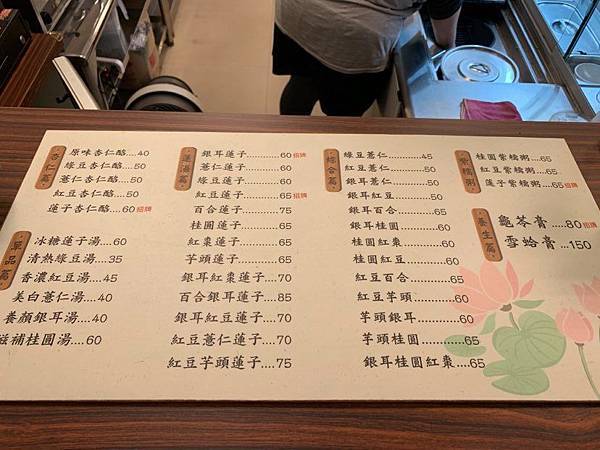 杏仁篇
原味杏仁酪....40
綠豆杏仁酪....50
薏仁杏仁酪....50
紅豆杏仁酪....50
蓮子杏仁酪....60招牌
單品篇
冰糖蓮子湯....60
清熱綠豆湯....35
香濃紅豆湯....45
美白薏仁湯....40
養顏銀耳湯....40
滋補桂圓湯....60
蓮湯篇
銀耳蓮子..........60招牌
薏仁蓮子..........60
綠豆蓮子..........60
紅豆蓮子..........65招牌
百合蓮子..........75
桂圓蓮子..........65
紅棗蓮子..........65
芋頭蓮子..........65
銀耳紅棗蓮子....70
百合銀耳蓮子....85
銀耳紅豆蓮子....70
紅豆薏仁蓮子....70
紅豆芋頭蓮子....75
綜合篇
綠豆薏仁..........45
紅豆薏仁..........50
銀耳薏仁..........50
銀耳紅豆..........50
銀耳百合..........65
銀耳桂圓..........60
桂圓紅棗..........60
桂圓紅豆..........60
紅豆百合..........65
紅豆芋頭..........60
芋頭銀耳..........60
芋頭桂圓............65
銀耳桂圓紅棗....65
紫糯粥
桂圓紫糯粥....65
紅豆紫糯粥....65
蓮子紫糯粥....65招牌
養生篇
龜苓膏....80招牌
雪蛤膏....150